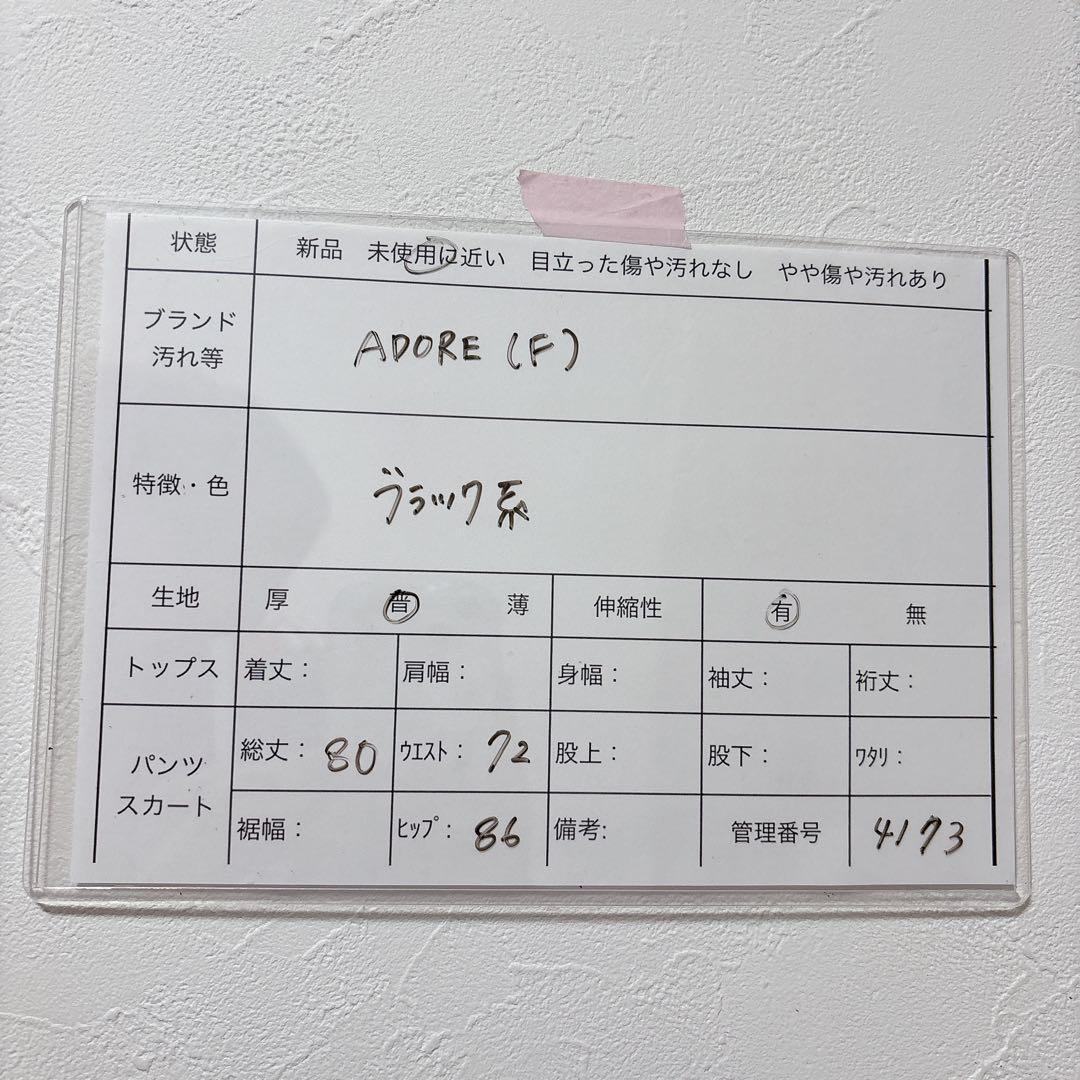 状態 新品 未使用に近い 目立った傷や汚れなし やや傷や汚れあり
ブランド
汚れ等
ADORE (F)
特徴・色 ブラック系
生地 厚 普 薄 伸縮性 有 無
トップス 着丈： 肩幅： 身幅： 袖丈： 裄丈：
パンツ
スカート
総丈： 80 ｳｴｽﾄ： 72 股上： 股下： ﾜﾀﾘ：
裾幅： ﾋｯﾌﾟ： 86 備考: 管理番号 4173